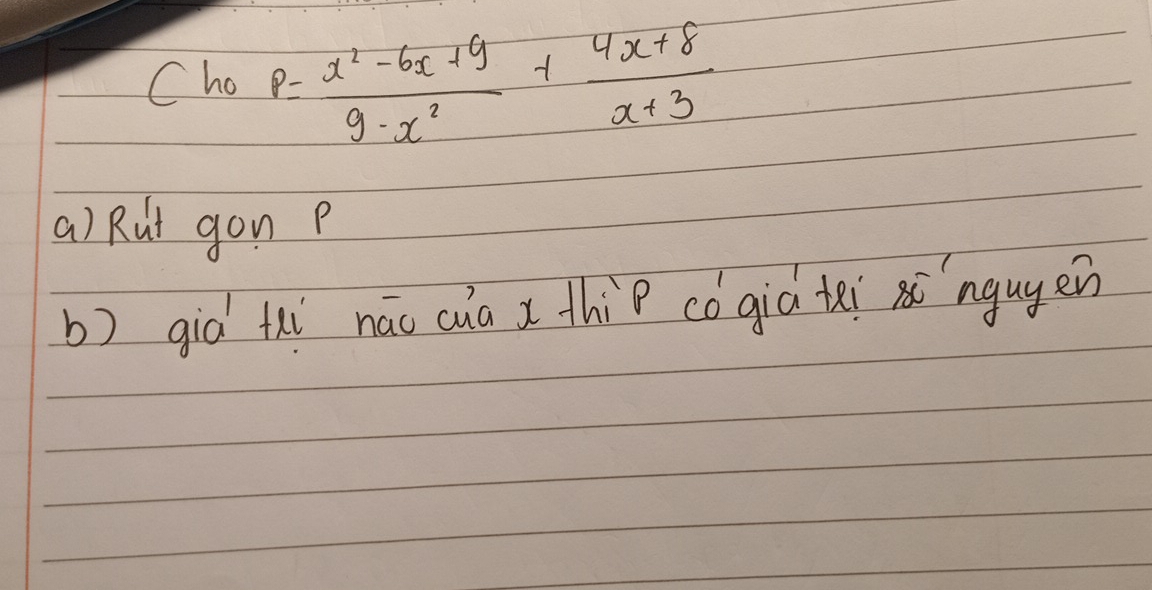 Cho P = \frac{x^2 - 6x + 9}{9 - x^2} + \frac{4x + 8}{x + 3}
a) Rút gọn P
b) giá trị nào của x thì P có giá trị số nguyên